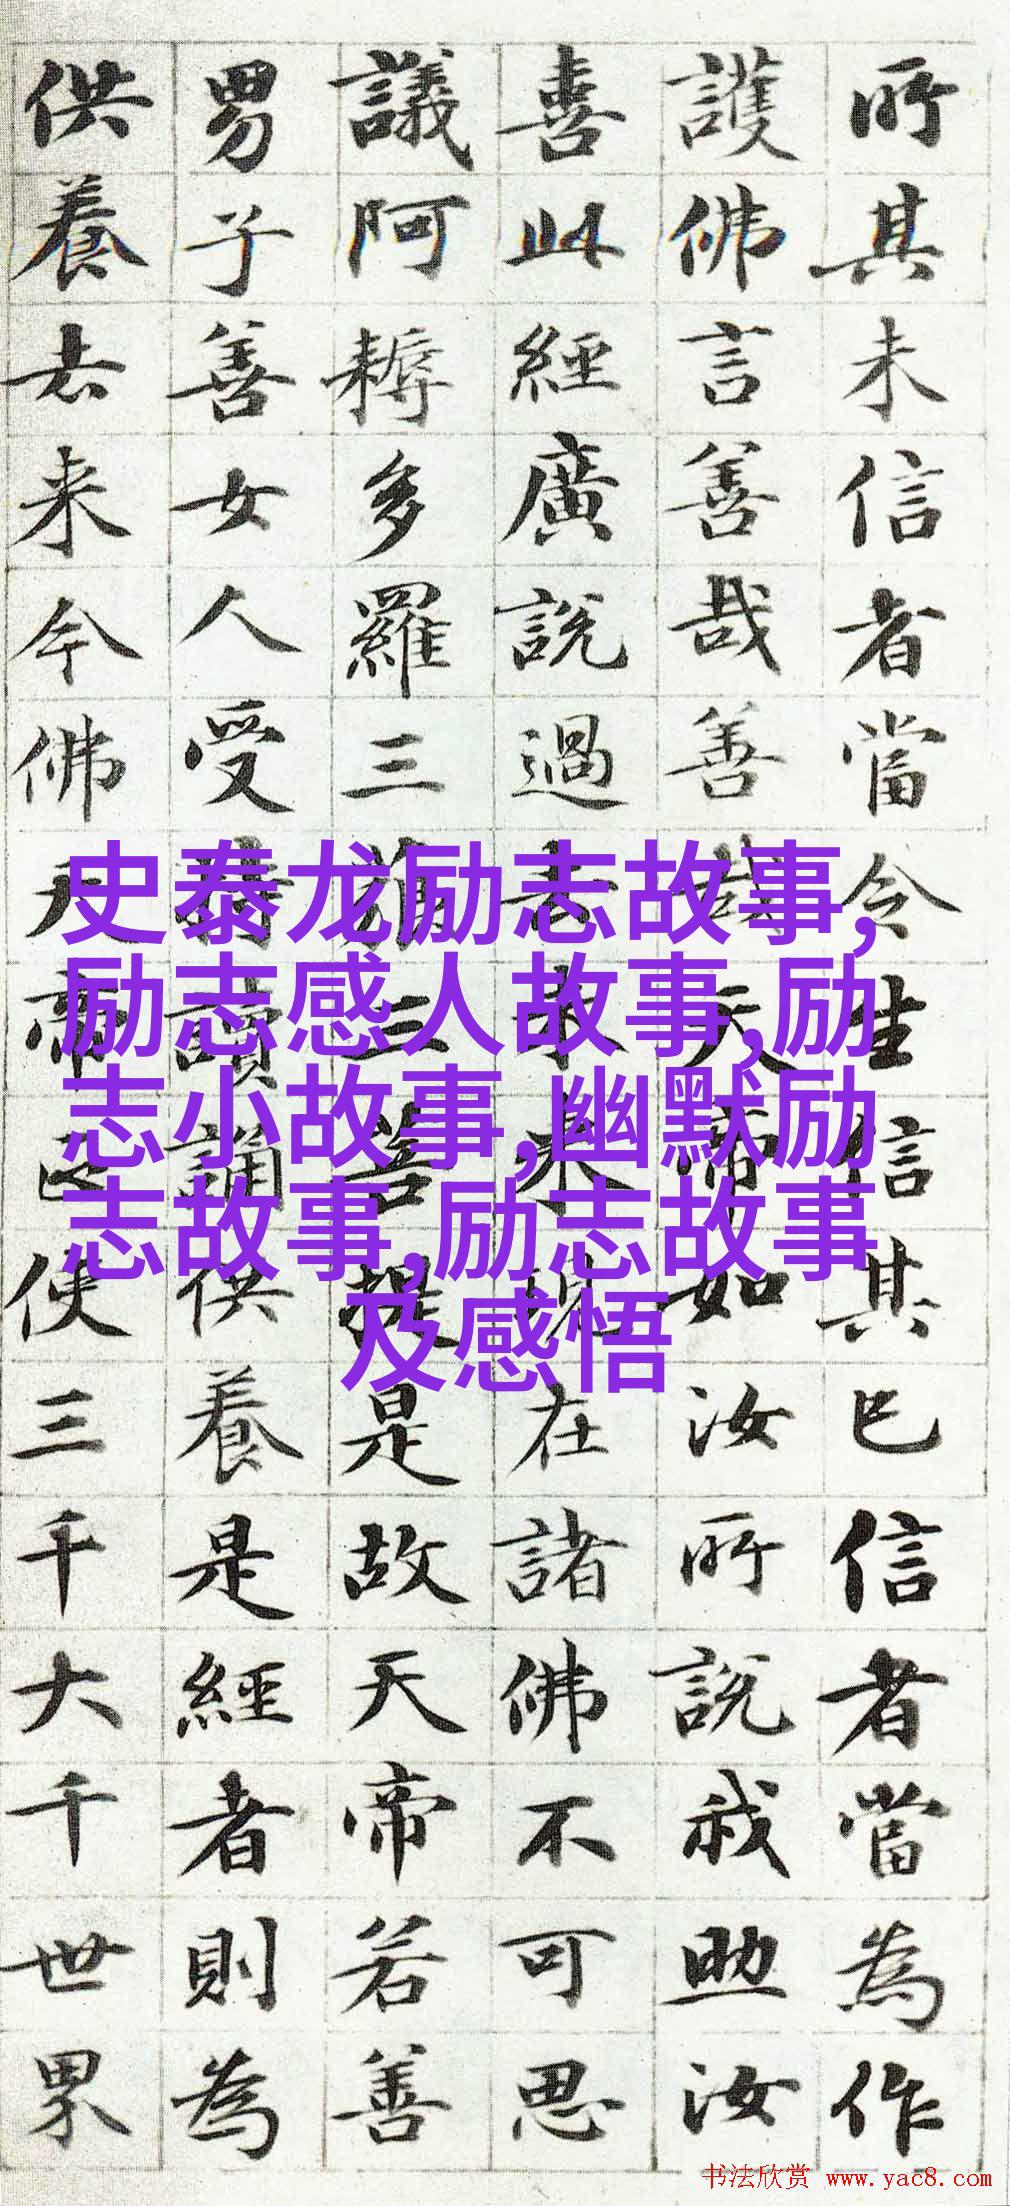 所其未信者當令生信其已信者當為作
護佛言善哉善哉天帝如汝所說我助汝
喜此經廣說過去未來現在諸佛不可思
議阿耨多羅三藐三菩提是故天帝若善
男子善女人受持讀誦供養是經者則為
供養去来今佛天帝正使三千大千世界
史泰龙励志故事,
励志感人故事,励
志小故事,幽默励
志故事,励志故事
及感悟
书法欣赏 www.yac8.com